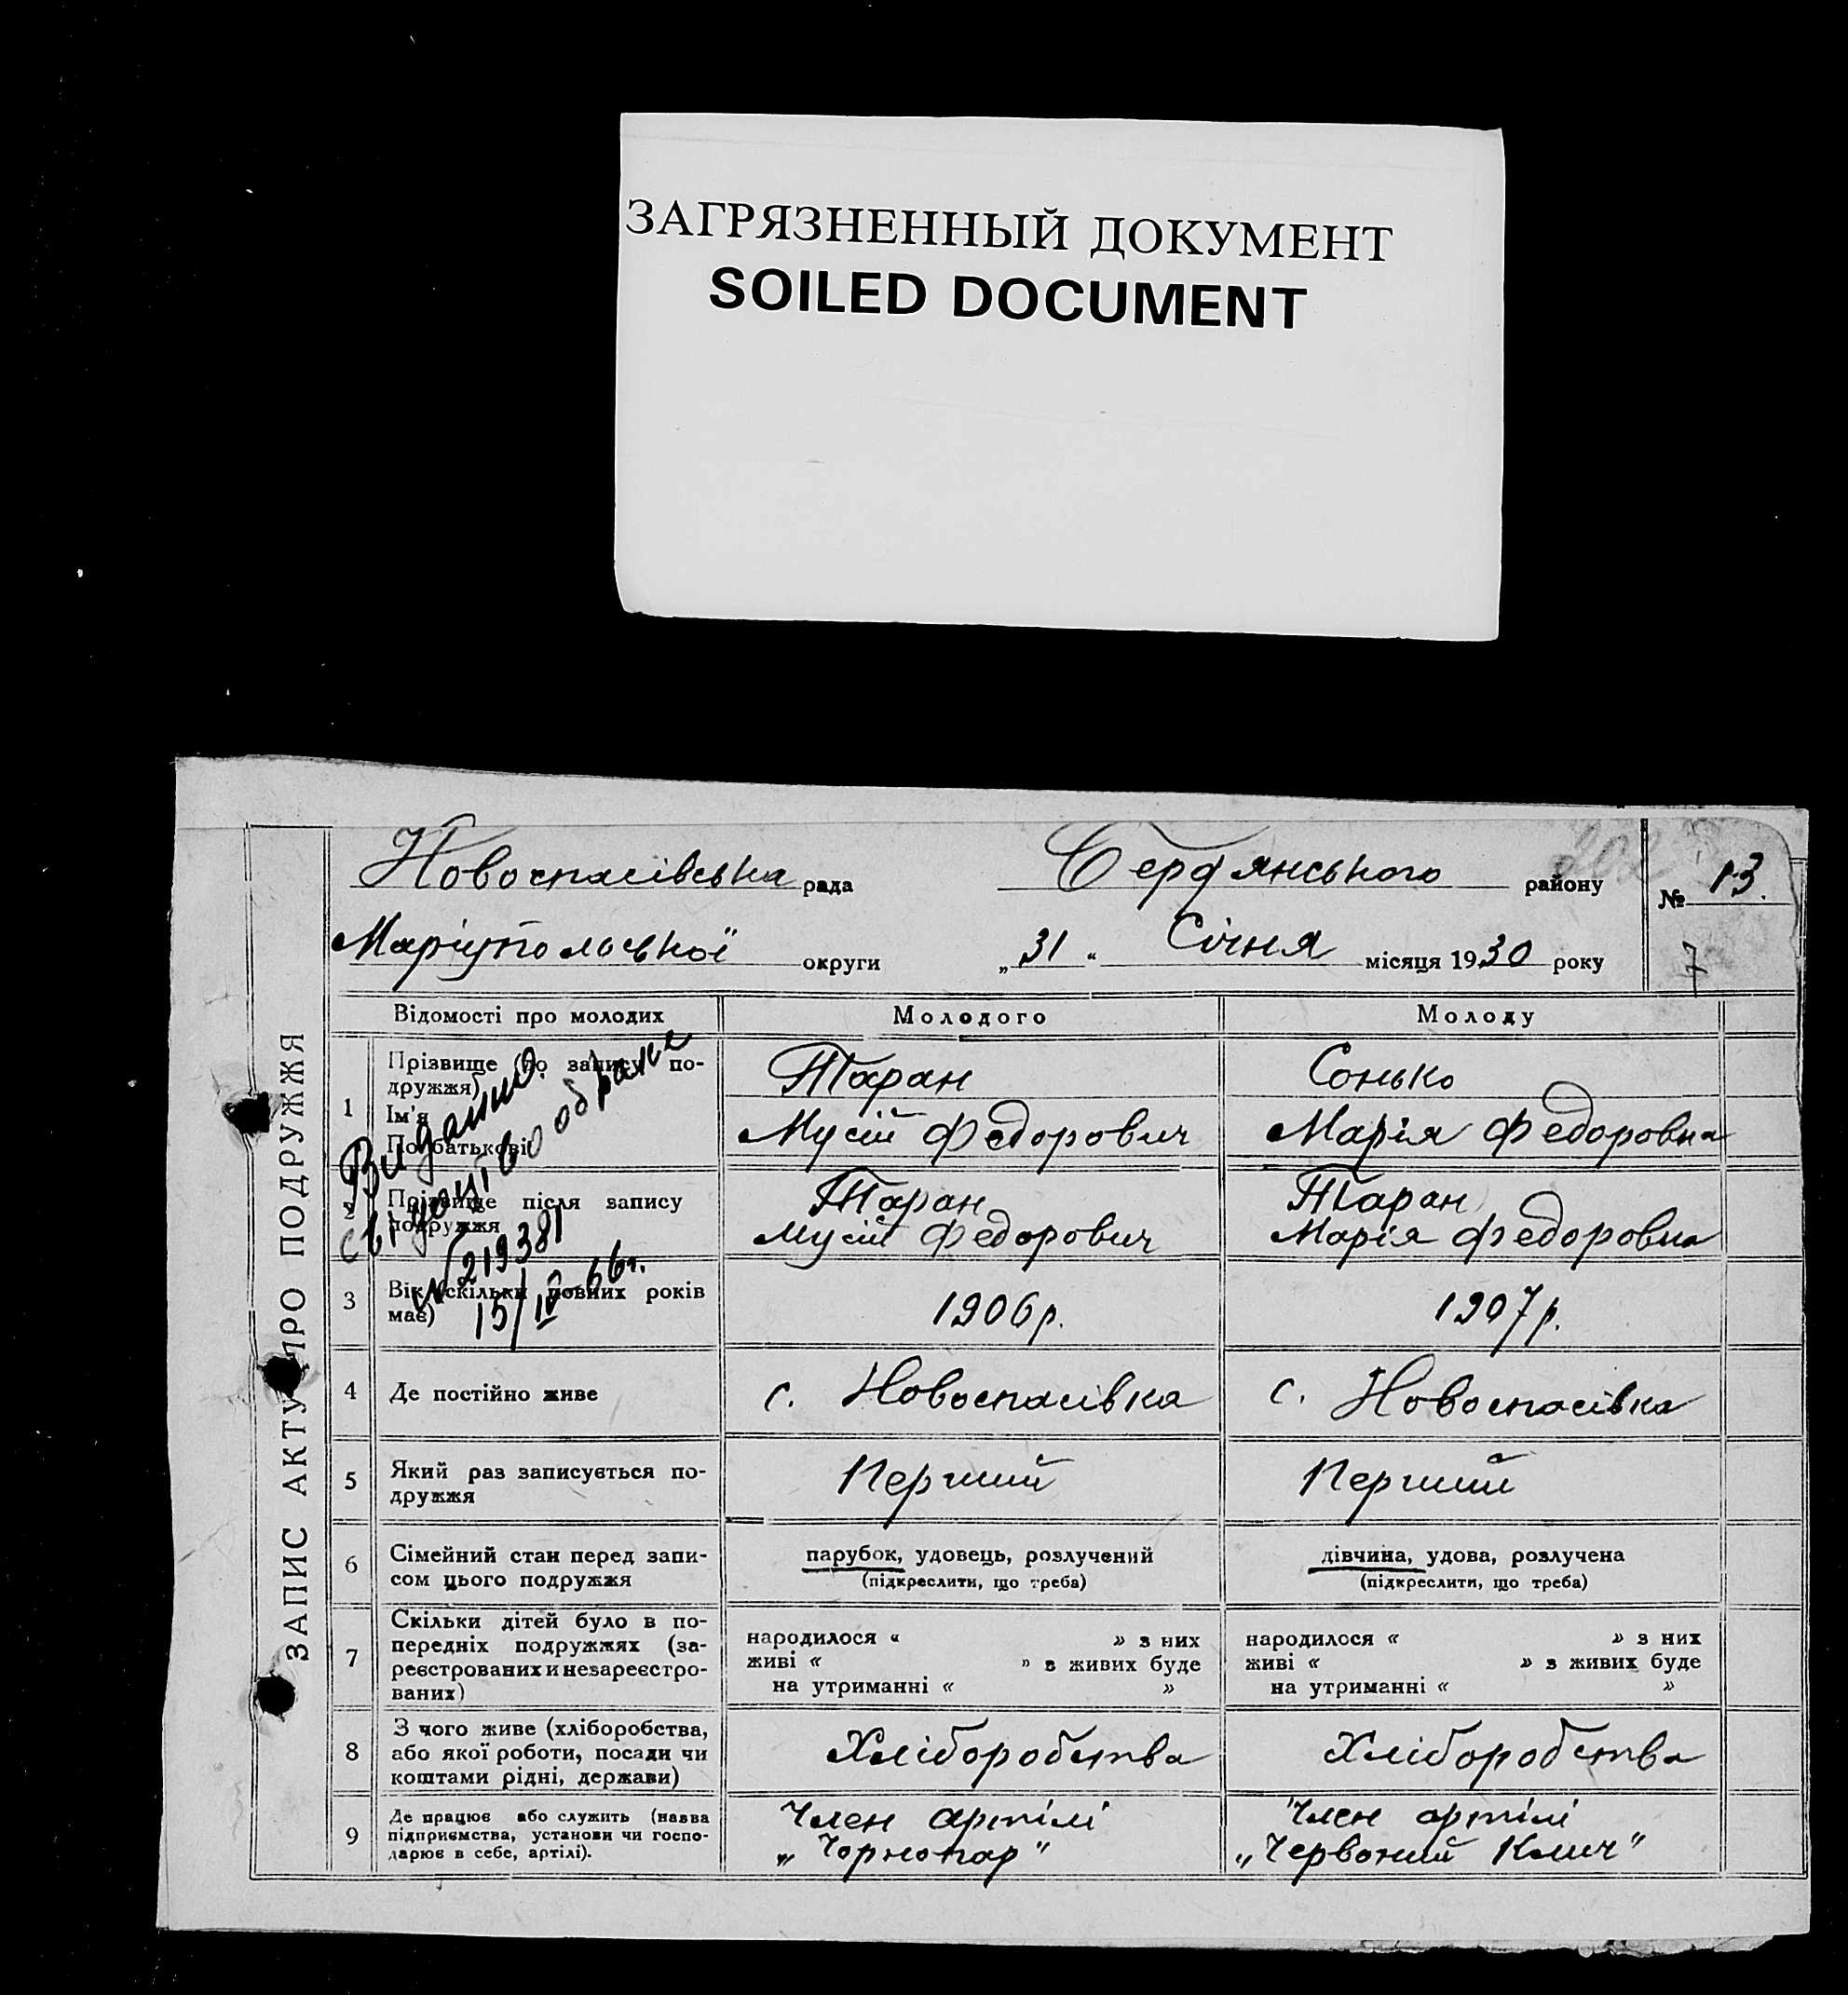 ЗАГРЯЗНЕННЫЙ ДОКУМЕНТ
SOILED DOCUMENT
ЗАПИС АКТУ ПРО ПОДРУЖЖЯ
Новоспасівська рада Бердянського району № 13.
Маріупольської округи „31“ Січня місяця 1930 року
7
Відомості про молодих Молодого Молоду
1 Прізвище (до запису по-
дружжя)
Ім'я
По батькові
Таран
Мусій Федорович
Сонько
Марія Федоровна
2 Прізвище після запису
подружжя
Таран
Мусій Федорович
Таран
Марія Федоровна
Видання
свідоцтво о браке
№ 219381
15/IV-66г.
3 Вік (скільки повних років
має)
1906р. 1907р.
4 Де постійно живе с. Новоспасівка с. Новоспасівка
5 Який раз записується по-
дружжя
Перший Перший
6 Сімейний стан перед запи-
сом цього подружжя
парубок, удовець, розлучений
(підкреслити, що треба)
дівчина, удова, розлучена
(підкреслити, що треба)
7 Скільки дітей було в по-
передніх подружжях (за-
реєстрованих и незареєстро-
ваних)
народилося « » з них
живі « » з живих буде
на утриманні « »
народилося « » з них
живі « » з живих буде
на утриманні « »
8 З чого живе (хліборобства,
або якої роботи, посади чи
коштами рідні, держави)
Хліборобства Хліборобства
9 Де працює або служить (назва
підприємства, установи чи госпо-
дарює в себе, артілі).
Член артілі
„Чорнопар"
Член артілі
„Червоний Клич"